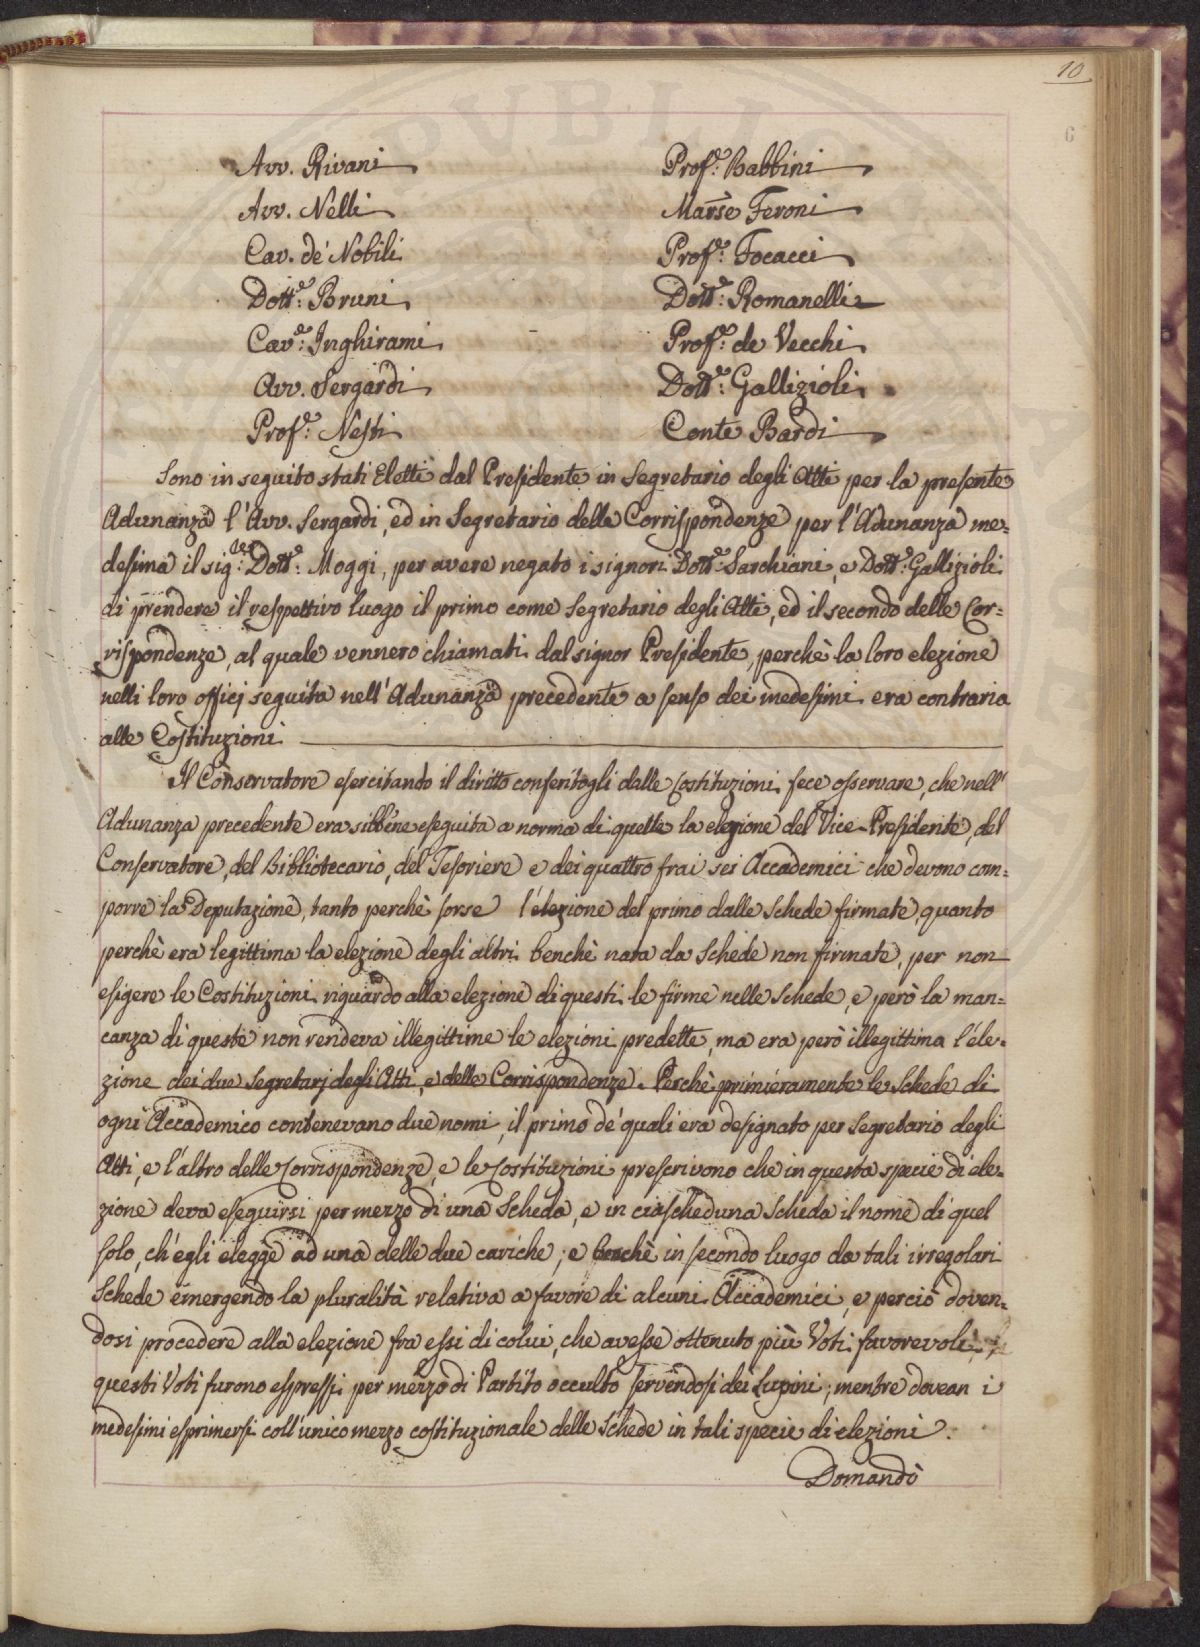 10
6
Avv. Rivani
Avv. Nelli
Cav. de' Nobili
Dott.e Bruni
Cav.e Inghirami
Avv. Sergardi
Prof.e Nesti
Prof.e Babbini
Marse Feroni
Prof.e Focacci
Dott.e Romanelli
Prof.e de Vecchi
Dott.e Gallizioli
Conte Bardi
Sono in seguito stati Eletti dal Presidente in Segretario degli Atti per la presente
Adunanza l'Avv. Sergardi, ed in Segretario delle Corrispondenze per l'Adunanza me=
desima il sig.re Dott.e Moggi, per avere negato i signori Dott.e Sarchiani, e Dott.e Gallizioli
di prendere il respettivo luogo il primo come Segretario degli Atti, ed il secondo delle Cor=
rispondenze, al quale vennero chiamati dal signor Presidente, perchè la loro elezione
nelli loro officj seguita nell'Adunanza precedente a senso dei medesimi era contraria
alle Costituzioni.
Il Conservatore esercitando il diritto conferitogli dalle Costituzioni fece osservare, che nell'
Adunanza precedente era sibbene eseguita a norma di quelle la elezione del Vice-Presidente, del
Conservatore, del Bibliotecario, del Tesoriere e dei quattro frai sei Accademici che devono com=
porre la Deputazione, tanto perchè sorse l'elezione del primo dalle Schede firmate, quanto
perchè era legittima la elezione degli altri benchè nata da Schede non firmate, per non
esigere le Costituzioni riguardo alla elezione di questi le firme nelle Schede, e però la man=
canza di queste non rendeva illegittime le elezioni predette, ma era però illegittima l'ele=
zione dei due Segretarj degli Atti, e delle Corrispondenze. Perchè primieramente le Schede di
ogni Accademico contenevano due nomi, il primo de' quali era designato per Segretario degli
Atti, e l'altro delle Corrispondenze, e le Costituzioni prescrivono che in questa specie di ele=
zione deva eseguirsi per mezzo di una Scheda, e in ciascheduna Scheda il nome di quel
solo, ch'egli elegge ad una delle due cariche; e perchè in secondo luogo da tali irregolari
Schede emergendo la pluralità relativa a favore di alcuni Accademici, e perciò doven=
dosi procedere alla elezione fra essi di colui, che avesse ottenuto più Voti favorevoli,
questi Voti furono espressi per mezzo di Partito occulto servendosi dei Lupini, mentre dovean i
medesimi esprimersi coll'unico mezzo costituzionale delle Schede in tali specie di elezioni.
Domandò